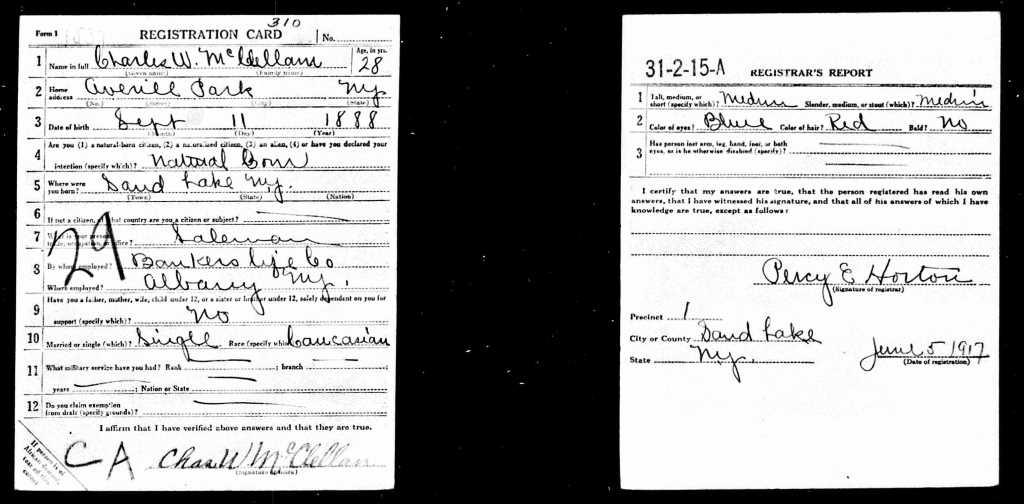 310
Form 1 REGISTRATION CARD No.
1 Name in full Charles W. McClellan Age, in yrs. 28
(Given name) (Family name)
2 Home address Averill Park NY
(No.) (Street) (City) (State)
3 Date of birth Sept 11 1888
(Month) (Day) (Year)
4 Are you (1) a natural-born citizen, (2) a naturalized citizen, (3) an alien, (4) or have you declared your
intention (specify which)? Natural Born
5 Where were you born? Sand Lake N.Y.
(Town) (State) (Nation)
6 If not a citizen, of what country are you a citizen or subject?
7 What is your present trade, occupation, or office? Saleman
29
8 By whom employed? Bankers Life Co
Where employed? Albany N.Y.
9 Have you a father, mother, wife, child under 12, or a sister or brother under 12, solely dependent on you for
support (specify which)? No
10 Married or single (which)? Single Race (specify which)? Caucasian
11 What military service have you had? Rank ; branch ;
years ; Nation or State
12 Do you claim exemption from draft (specify grounds)?
I affirm that I have verified above answers and that they are true.
C A Chas W McClellan
(Signature or mark)
If person is of African descent, tear off this corner
31-2-15-A REGISTRAR'S REPORT
1 Tall, medium, or short (specify which)? Medium Slender, medium, or stout (which)? Medium
2 Color of eyes? Blue Color of hair? Red Bald? No
3 Has person lost arm, leg, hand, foot, or both
eyes, or is he otherwise disabled (specify)?
I certify that my answers are true, that the person registered has read his own
answers, that I have witnessed his signature, and that all of his answers of which I have
knowledge are true, except as follows:
Percy E Horton
(Signature of registrar)
Precinct 1
City or County Sand Lake
State N.Y. June 5 1917
(Date of registration)